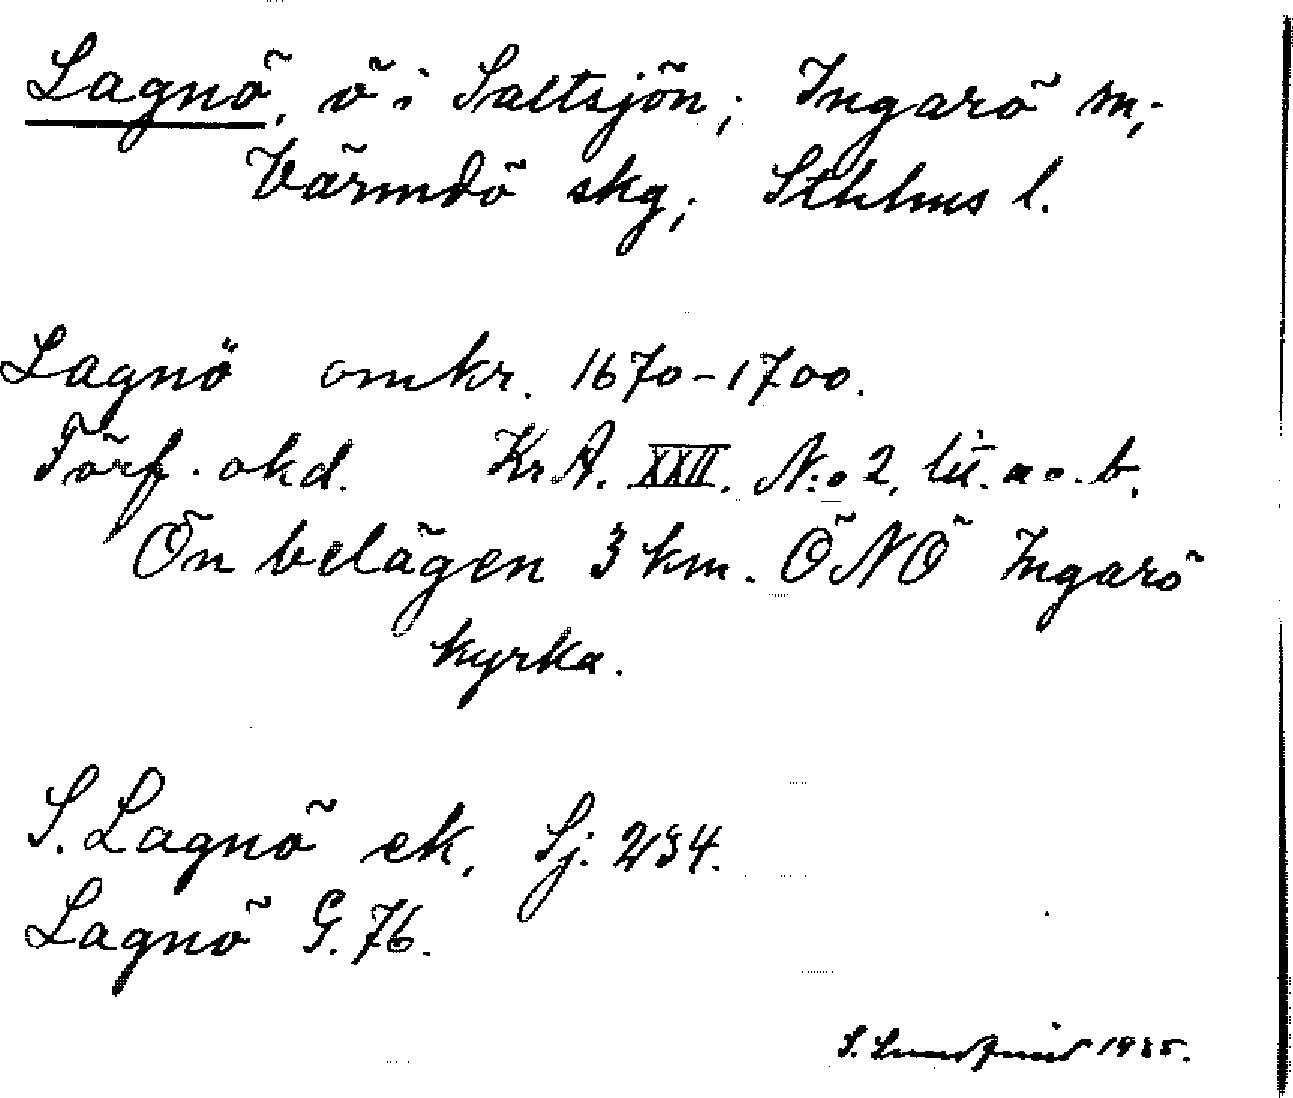 Lagnö, ö i Saltsjön; Ingarö sn;
Värmdö skg; Sthlms l.
Lagnö omkr. 1670-1700.
Förf. okd. Kr A. XXII. N:o 2, lit. a o. b.
Ön belägen 3 km. ÖNÖ Ingarö
kyrka.
S. Lagnö ek. Sj. 234.
Lagnö G. 76.
S. 1935.